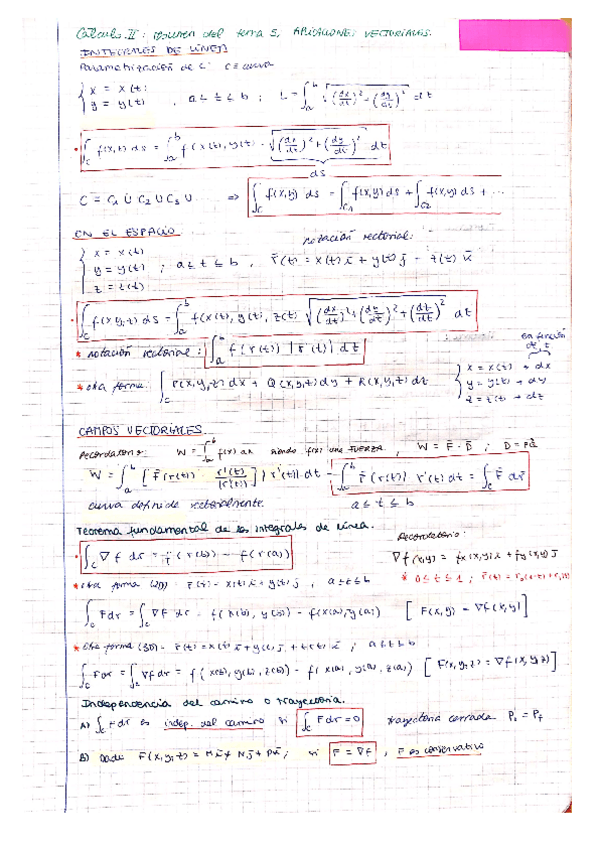 Cálculo II: resumen del tema 5, APLICACIONES VECTORIALES.
INTEGRALES DE LÍNEA
Parametrización de C: C ≡ curva
{ x = x(t)
{ y = y(t) , a ≤ t ≤ b ; L = ∫_a^b √((dx/dt)² + (dy/dt)²) dt
• ∫_C f(x,t) ds = ∫_a^b f(x(t), y(t)) · √((dx/dt)² + (dy/dt)²) dt
ds
C = C1 U C2 U C3 U ⇒ ∫_C f(x,y) ds = ∫_C1 f(x,y) ds + ∫_C2 f(x,y) ds + ...
EN EL ESPACIO
notación vectorial:
{ x = x(t)
{ y = y(t) ; a ≤ t ≤ b , r̄(t) = x(t) ī + y(t) j̄ - z(t) k̄
{ z = z(t)
• ∫_C f(x,y,z) ds = ∫_a^b f(x(t), y(t), z(t)) √((dx/dt)² + (dy/dt)² + (dz/dt)²) dt
* notación vectorial: ∫_a^b f(r(t)) |r(t)| dt
en función de t
* otra forma: ∫_C P(x,y,z) dx + Q(x,y,z) dy + R(x,y,z) dz
{ x = x(t) → dx
{ y = y(t) → dy
{ z = z(t) → dz
CAMPOS VECTORIALES
Recordatorio: W = ∫_a^b f(x) dx siendo f(x) una FUERZA , W = F̄ · D̄ ; D̄ = PQ
W = ∫_a^b [F̄(r(t)) r'(t)/|r'(t)|] |r'(t)| dt = ∫_a^b F̄(r(t)) r'(t) dt = ∫_C F̄ dr̄
curva definida vectorialmente. a ≤ t ≤ b
Teorema fundamental de las integrales de línea.
Recordatorio:
• ∫_C ∇f dr = f(r(b)) - f(r(a))
∇f(x,y) = fx(x,y) ī + fy(x,y) j̄
* otra forma (2D) - r̄(t) = x(t) ī + y(t) j̄ , a ≤ t ≤ b
* 0 ≤ t ≤ 1 ;
∫_C F dr = ∫_C ∇f dr - f(x(b), y(b)) - f(x(a), y(a)) [F(x,y) = ∇f(x,y)]
* Otra forma (3D) - r̄(t) = x(t) ī + y(t) j̄ + z(t) k̄ ; a ≤ t ≤ b
∫_C F dr = ∫_C ∇f dr = f(x(b), y(b), z(b)) - f(x(a), y(a), z(a)) [F(x,y,z) = ∇f(x,y,z)]
Independencia del camino o trayectoria.
A) ∫_C F dr es indep. del camino si ∫_C F dr = 0 trayectoria cerrada Pi = Pf
B) Dado F(x,y,z) = M ī + N j̄ + P k̄ ; si F = ∇f , F es conservativo